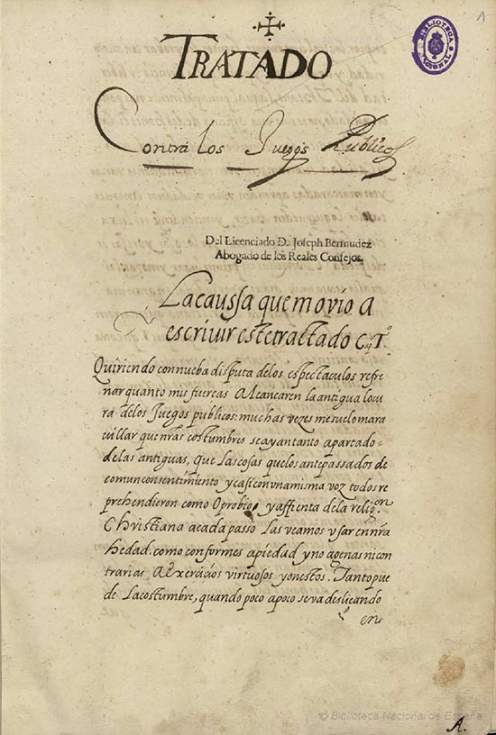 1
TRATADO
Contra los Juegos Publicos
BIBLIOTECA NACIONAL
Del Licenciado D. Joseph Bermudez
Abogado de los Reales Consejos.
La caussa que movio a
escriuir este tractado C. I.
Quiriendo con nueba disputa delos espectaculos refre
nar quanto mis fuercas Alcancaren la antigua locu
ra delos Juegos publicos: muchas vezes me suelo mara
uillar que nras costumbres se ayan tanto apartado
delas antiguas, que las cosas que los antepassados de
comun consentimiento y casi con vna misma voz todos re
prehendieron como Oprobio y affrenta de la religion
Christiana a cada passo las veamos vsar en nra
hedad. como conformes a piedad y no agenas ni con
trarias A exercicios virtuosos y onestos. Tanto pue
de La costumbre, quando poco apoco se va deslicando
en
A.
© Biblioteca Nacional de España